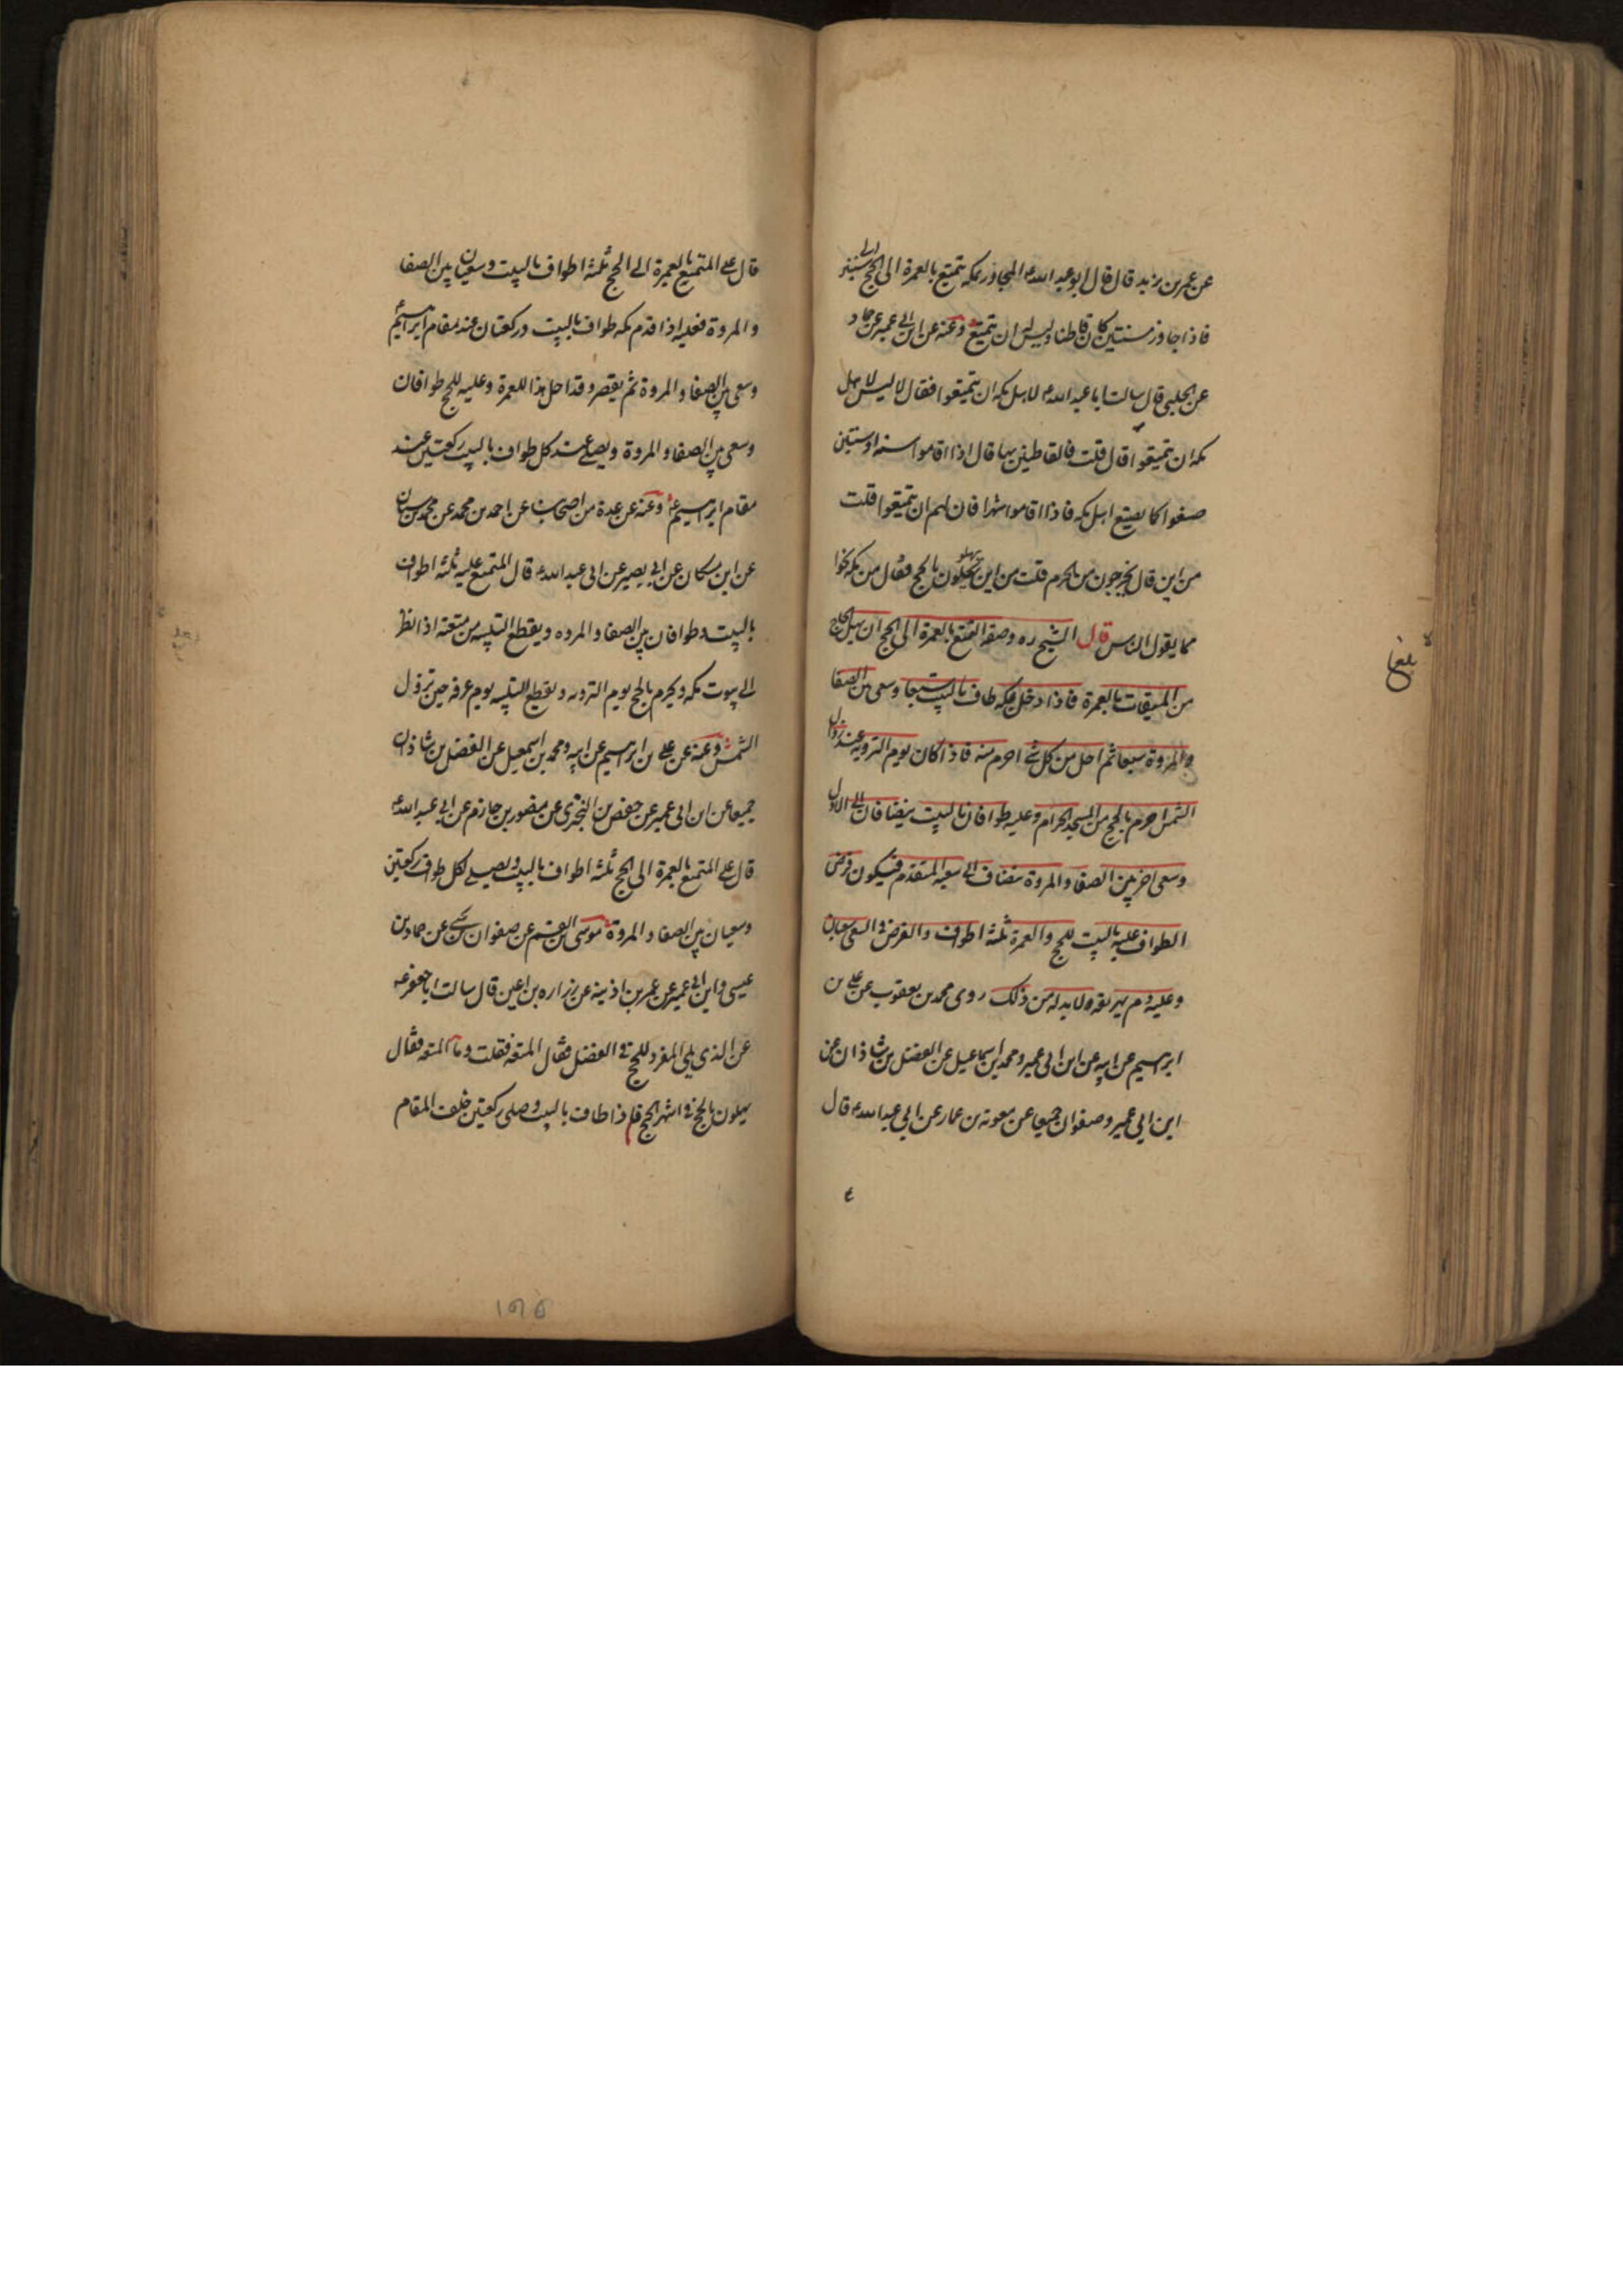 عن عمر بن يزيد قال قال ابو عبد الله ع المجاور بمكه يتمتع بالعمرة الى الحج الى سنتين
فاذا جاوز سنتين كان قاطنا وليس له ان يتمتع وعنه عن ابن ابي عمير عن حماد
عن الحلبي قال سالت ابا عبد الله ع لاهل مكه ان يتمتعوا فقال لا ليس لاهل
مكه ان يتمتعوا قال قلت فالقاطنين بها قال اذا اقاموا سنة او سنتين
صنعوا كما يصنع اهل مكه فاذا اقاموا شهرا فان لهم ان يتمتعوا قلت
من اين قال يخرجون من الحرم قلت من اين يهلون بالحج فقال من مكه نحوا
مما يقول الناس قال الشيخ ره وصفة التمتع بالعمرة الى الحج ان يهل الحاج
من الميقات بالعمرة فاذا دخل مكه طاف بالبيت سبعا وسعى بين الصفا
والمروة سبعا ثم احل من كل شئ احرم منه فاذا كان يوم التروية عند زوال
الشمس احرم بالحج من المسجد الحرام وعليه طوافان بالبيت ينضافان الى الاول
وسعى اخر بين الصفا والمروة ينضاف الى سعيه المتقدم فيكون فرض
الطواف عليه بالبيت للحج والعمرة ثلثة اطواف والفرض في السعى سعيان
وعليه دم يهريقه ولا بد له من ذلك روى محمد بن يعقوب عن على بن
ابرهيم عن ابيه عن ابن ابى عمير ومحمد بن اسماعيل عن الفضل بن شاذان عن
ابن ابي عمير وصفوان جميعا عن معوية بن عمار عن ابي عبد الله ع قال
ع
بلغا
قال على المتمتع بالعمرة الى الحج ثلثة اطواف بالبيت وسعيان بين الصفا
والمروة فعليه اذا قدم مكه طواف بالبيت وركعتان عند مقام ابرهيم
وسعى بين الصفا والمروة ثم يقصر وقد احل هذا للعمرة وعليه للحج طوافان
وسعى بين الصفا والمروة ويصلى عند كل طواف بالبيت ركعتين عند
مقام ابرهيم ع وعنه عن عدة من اصحابنا عن احمد بن محمد عن محمد بن سنان
عن ابن مسكان عن ابي بصير عن ابى عبد الله ع قال المتمتع عليه ثلثة اطواف
بالبيت وطوافان بين الصفا والمروه ويقطع التلبيه من متعته اذا نظر
الى بيوت مكه ويحرم بالحج يوم الترويه ويقطع التلبيه يوم عرفه حين تزول
الشمس وعنه عن على بن ابرهيم عن ابيه ومحمد بن اسمعيل عن الفضل بن شاذان
جميعا عن ابن ابى عمير عن حفص بن البخترى عن منصور بن حازم عن ابى عبد الله ع
قال على المتمتع بالعمرة الى الحج ثلثة اطواف بالبيت ويصلى لكل طواف ركعتين
وسعيان بين الصفا والمروة موسى بن القسم عن صفوان بن يحيى عن حماد بن
عيسى وابن ابي عمير عن عمر بن اذينه عن زراره بن اعين قال سالت ابا جعفر ع
عن الذي يلي المفرد للحج في الفضل فقال المتعه فقلت وما المتعه فقال
يهلون بالحج في اشهر الحج فاذا طاف بالبيت وصلى ركعتين خلف المقام